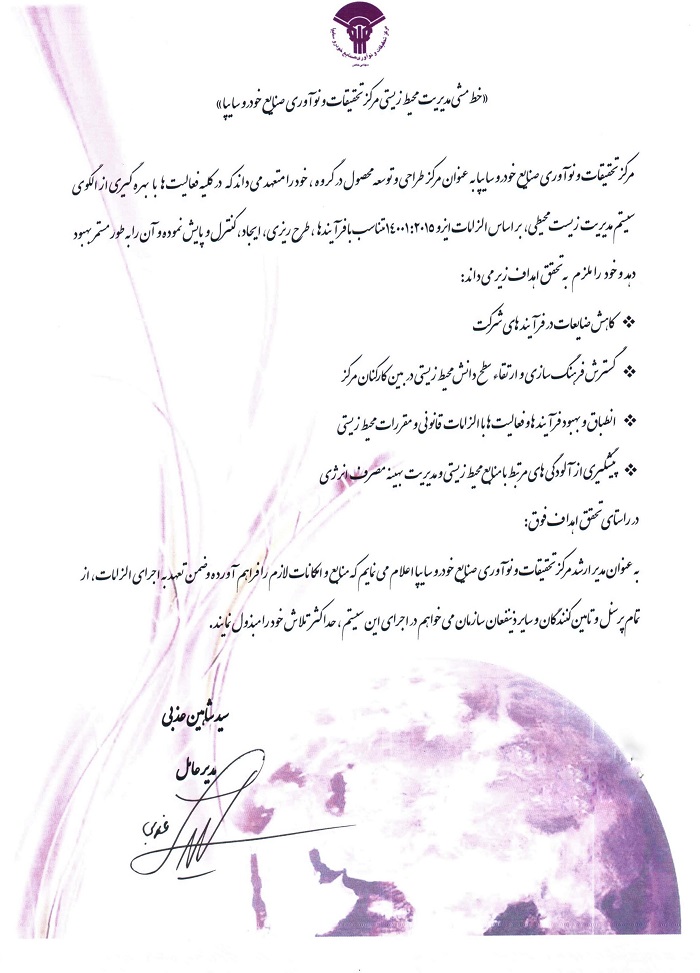 مرکز تحقیقات و نوآوری صنایع خودرو سایپا
«خط مشی مدیریت محیط زیستی مرکز تحقیقات و نوآوری صنایع خودرو سایپا»
مرکز تحقیقات و نوآوری صنایع خودرو سایپا به عنوان مرکز طراحی و توسعه محصول در گروه، خود را متعهد می داند که در کلیه فعالیت ها با بهره گیری از الگوی
سیستم مدیریت زیست محیطی، بر اساس الزامات ایزو ۱۴۰۰۱:۲۰۱۵ متناسب با فرآیندها، طرح ریزی، ایجاد، کنترل و پایش نموده و آن را به طور مستمر بهبود
دهد و خود را ملزم به تحقق اهداف زیر می داند:
❖ کاهش ضایعات در فرآیند های شرکت
❖ گسترش فرهنگ سازی و ارتقاء سطح دانش محیط زیستی در بین کارکنان مرکز
❖ انطباق و بهبود فرآیند ها و فعالیت ها با الزامات قانونی و مقررات محیط زیستی
❖ پیشگیری از آلودگی های مرتبط با منابع محیط زیستی و مدیریت بهینه مصرف انرژی
در راستای تحقق اهداف فوق:
به عنوان مدیر ارشد مرکز تحقیقات و نوآوری صنایع خودرو سایپا اعلام می نمایم که منابع و امکانات لازم را فراهم آورده و ضمن تعهد به اجرای الزامات، از
تمام پرسنل و تامین کنندگان و سایر ذینفعان سازمان می خواهم در اجرای این سیستم، حداکثر تلاش خود را مبذول نمایند.
سید شاهین عذبی
مدیر عامل